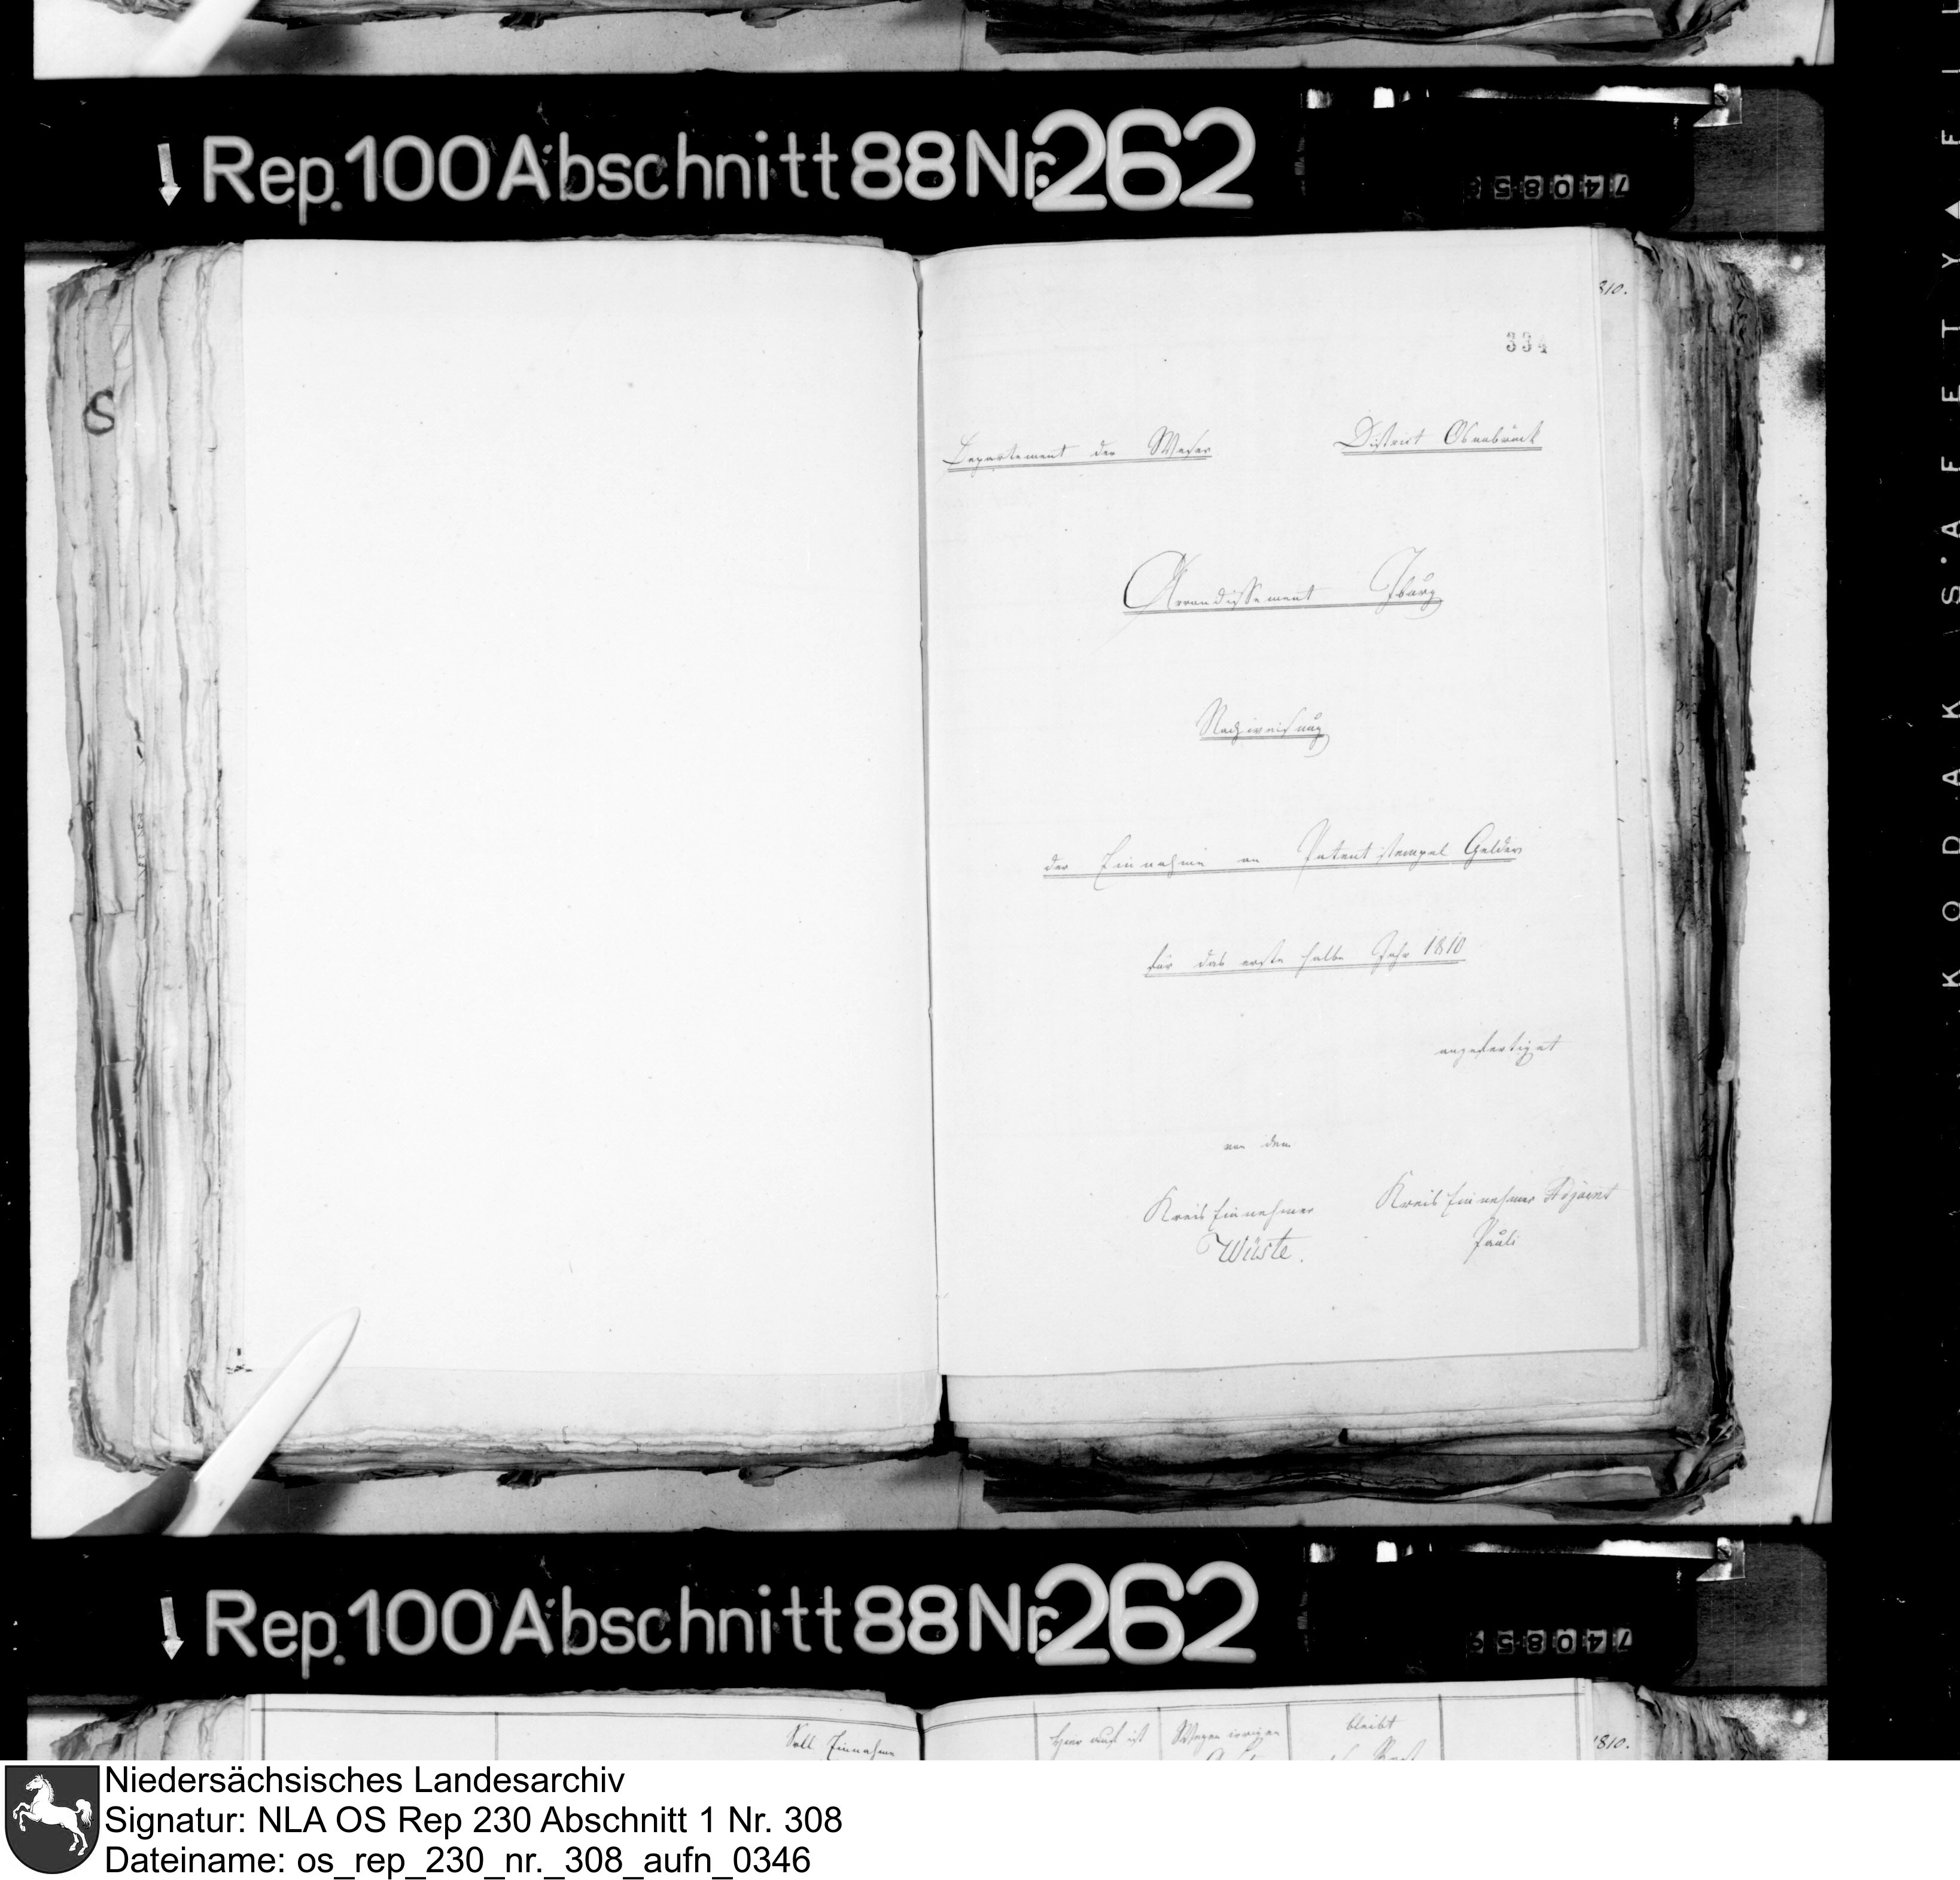 Rep. 100 Abschnitt 88 Nr. 262
810.
334
Departement der Weser District Osnabrück
Arrondissement Jburg
Nachweisung
der Einnahme an Patentstempel Gelder
für das erste halbe Jahr 1810
angefertiget
von dem
Kreis Einnehmer Kreis Einnehmer Adjoint
Wüste. Pauli
Rep. 100 Abschnitt 88 Nr. 262
Soll Einnahme
hier auf ist
Wegen irrigen
bleibt
1810.
KODAK SAFETY
Niedersächsisches Landesarchiv
Signatur: NLA OS Rep 230 Abschnitt 1 Nr. 308
Dateiname: os_rep_230_nr._308_aufn_0346